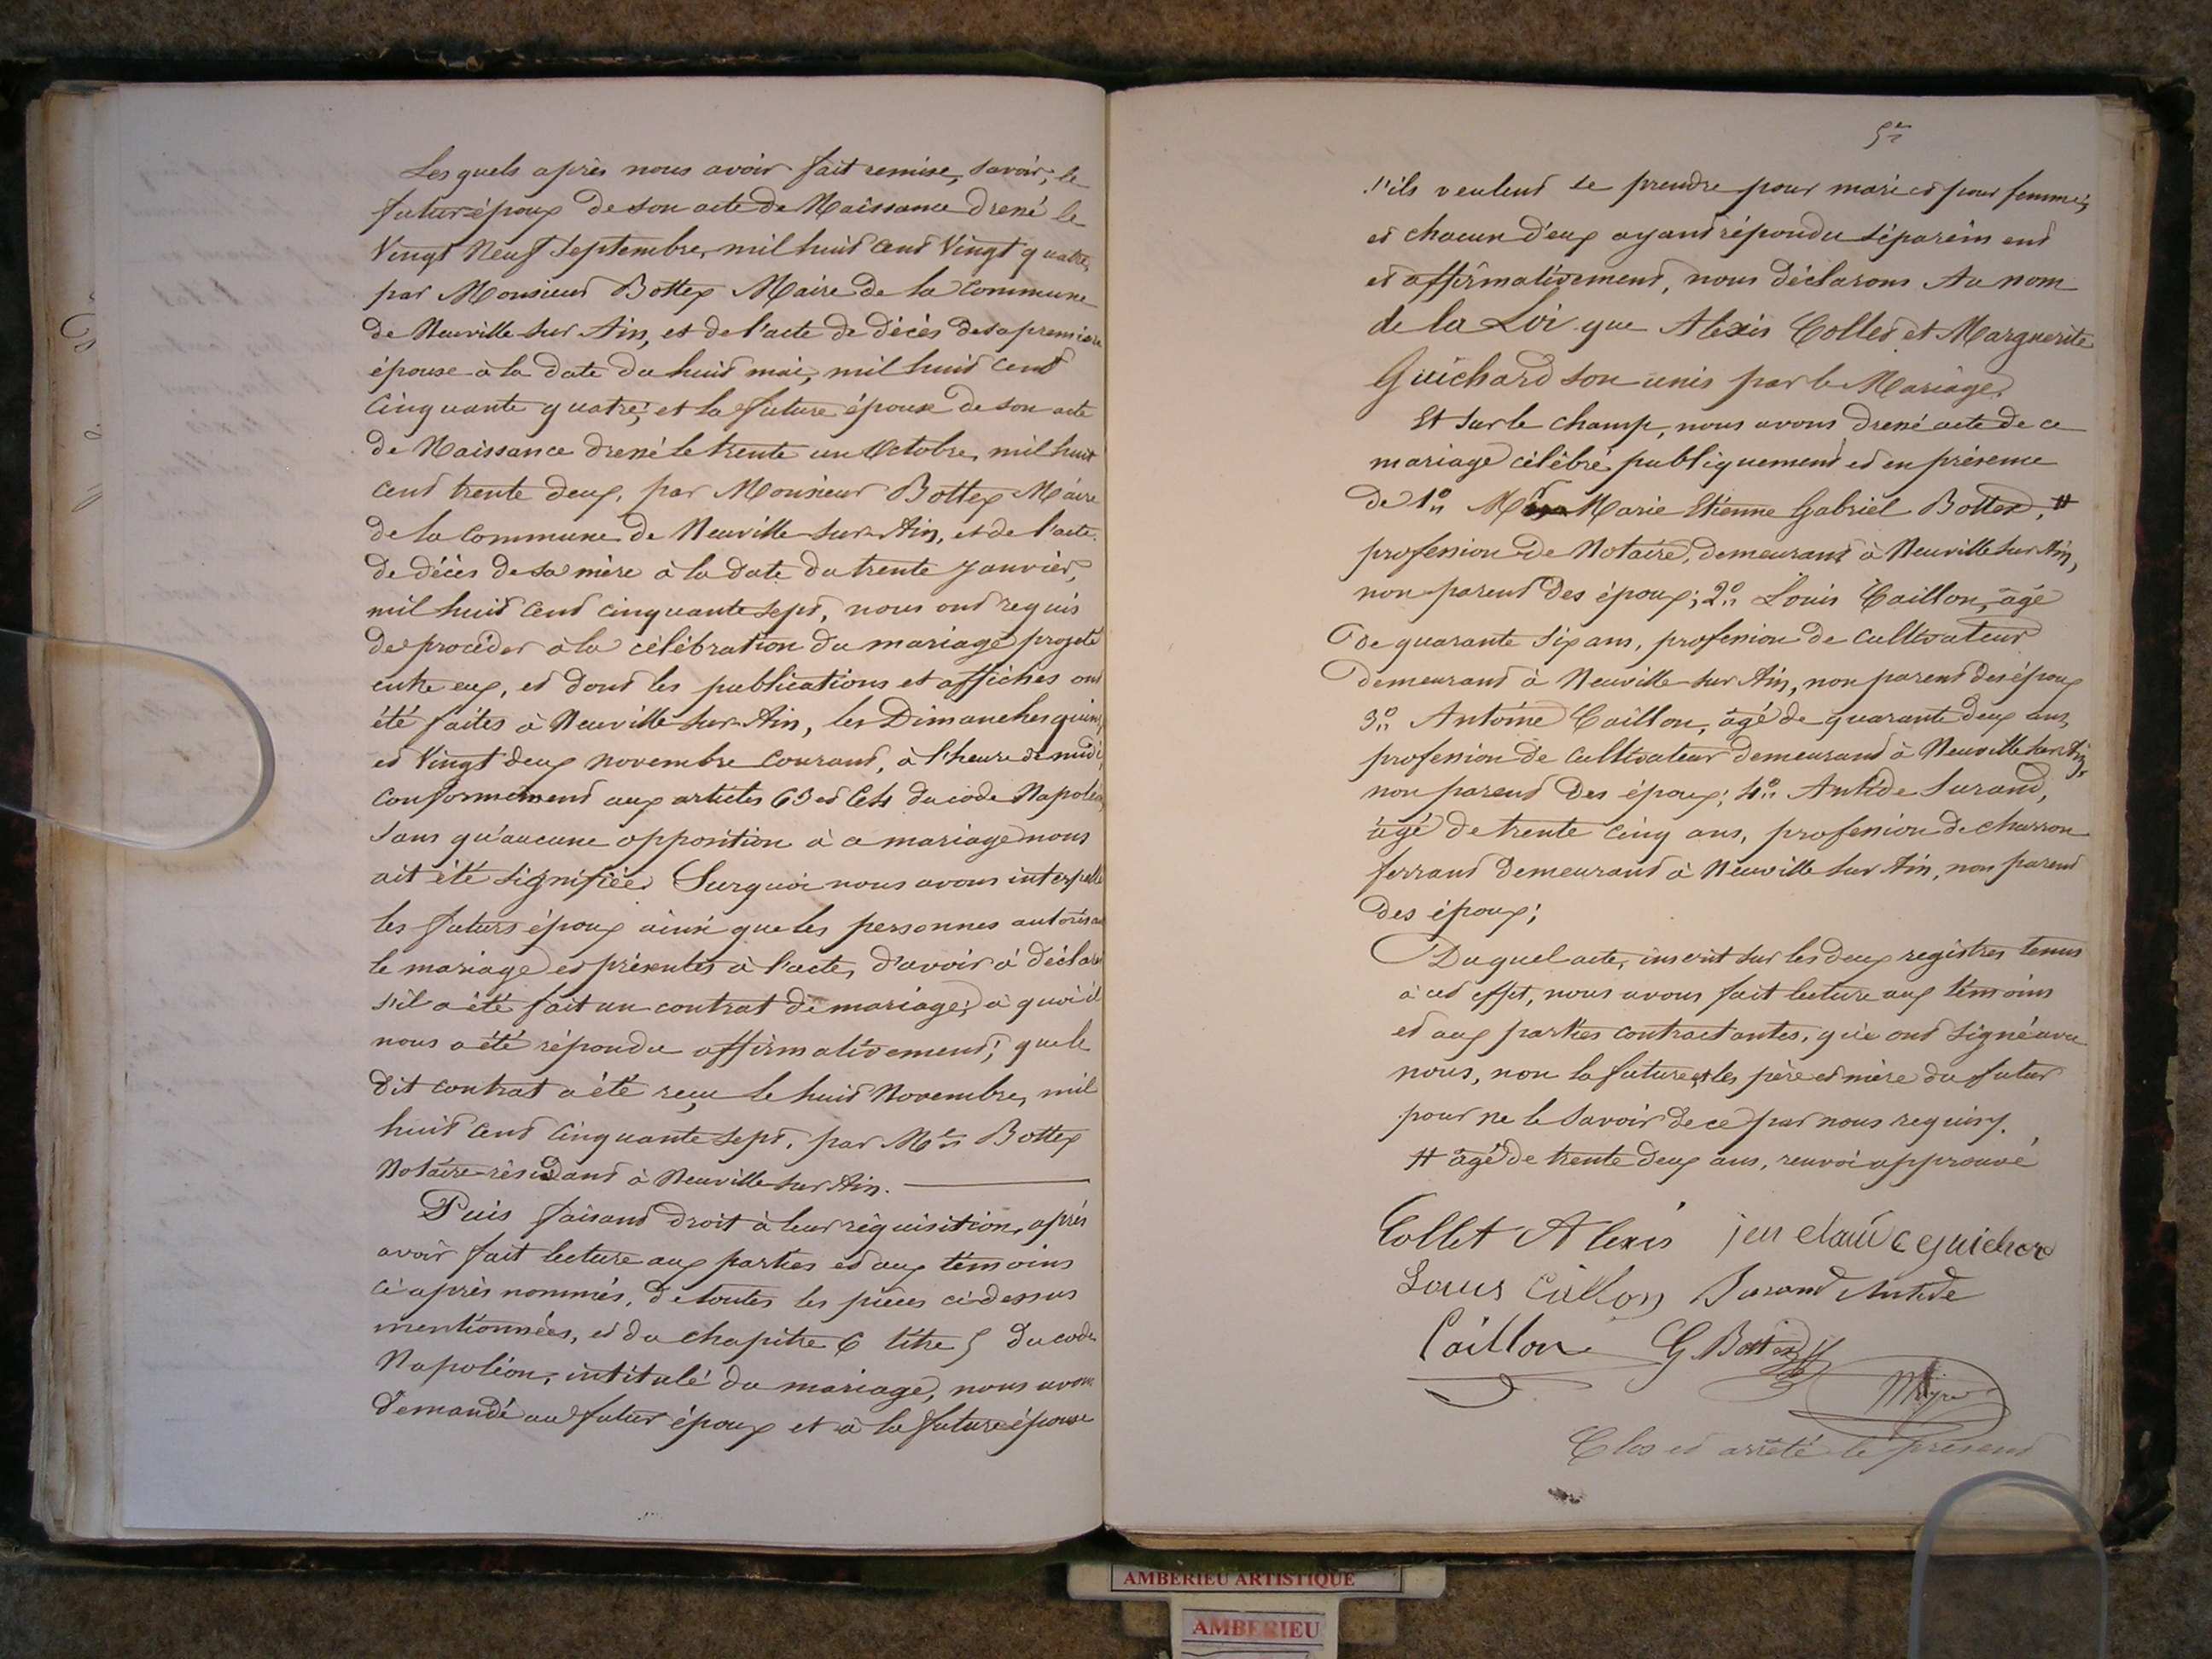 Lesquels après nous avoir fait remise, savoir; le
futur époux de son acte de Naissance dressé le
Vingt Neuf Septembre, mil huit cent Vingt quatre,
par Monsieur Bottex Maire de la Commune
de Neuville sur Ain, et de l'acte de décès de sa première
épouse à la date du huit mai, mil huit cent
Cinquante quatre; et la future épouse de son acte
de Naissance dressé le trente un Octobre, mil huit
cent trente deux, par Monsieur Bottex Maire
de la Commune de Neuville sur Ain, et de l'acte
de décès de sa mère à la date du trente Janvier,
mil huit cent cinquante sept, nous ont requis
de procéder à la célébration du mariage projeté
entre eux, et dont les publications et affiches ont
été faites à Neuville sur Ain, les Dimanches quinze
et Vingt deux novembre courant, à l'heure de midi,
Conformément aux articles 63 et 64 du code Napoléon,
Sans qu'aucune opposition à ce mariage nous
ait été signifiée. Surquoi nous avons interpellé
les futurs époux ainsi que les personnes autorisant
le mariage et présentes à l'acte, d'avoir à déclarer
s'il a été fait un contrat de mariage; à quoi il
nous a été répondu affirmativement; que le
dit contrat a été reçu le huit Novembre, mil
huit cent cinquante sept, par Me Bottex
Notaire résidant à Neuville sur Ain.
Puis faisant droit à leur réquisition, après
avoir fait lecture aux parties et aux témoins
ci après nommés, de toutes les pièces ci-dessus
mentionnées, et du chapitre 6 titre 5 du code
Napoléon, intitulé du mariage, nous avons
demandé au futur époux et à la future épouse
s'ils veulent se prendre pour mari et pour femme;
et chacun d'eux ayant répondu séparément
et affirmativement, nous déclarons Au nom
de la Loi que Alexis Collet et Marguerite
Guichard son unis par le Mariage.
Et sur le champ, nous avons dressé acte de ce
mariage célébré publiquement et en présence
de 1° Mr Marie Etienne Gabriel Bottex, #
profession de Notaire, demeurant à Neuville sur Ain,
non parent des époux; 2° Louis Caillon, âgé
de quarante six ans, profession de cultivateur
Demeurant à Neuville sur Ain, non parent des époux
3° Antoine Caillon, âgé de quarante deux ans,
profession de cultivateur demeurant à Neuville sur Ain,
non parent des époux; 4° Antide Surand,
âgé de trente cinq ans, profession de charron
ferrant demeurant à Neuville sur Ain, non parent
des époux;
Duquel acte, inscrit sur les deux registres tenus
à cet effet, nous avons fait lecture aux témoins
et aux parties contractantes, qui ont signé avec
nous, non la future et les père et mère du futur
pour ne le savoir de ce par nous requis.
# âgé de trente deux ans, renvoi approuvé
Collet Alexis jen claude guichar
Louis Caillon Surand Antide
Caillon G. Bottex
Clos et arrêté le présent
AMBERIEU ARTISTIQUE
AMBERIEU